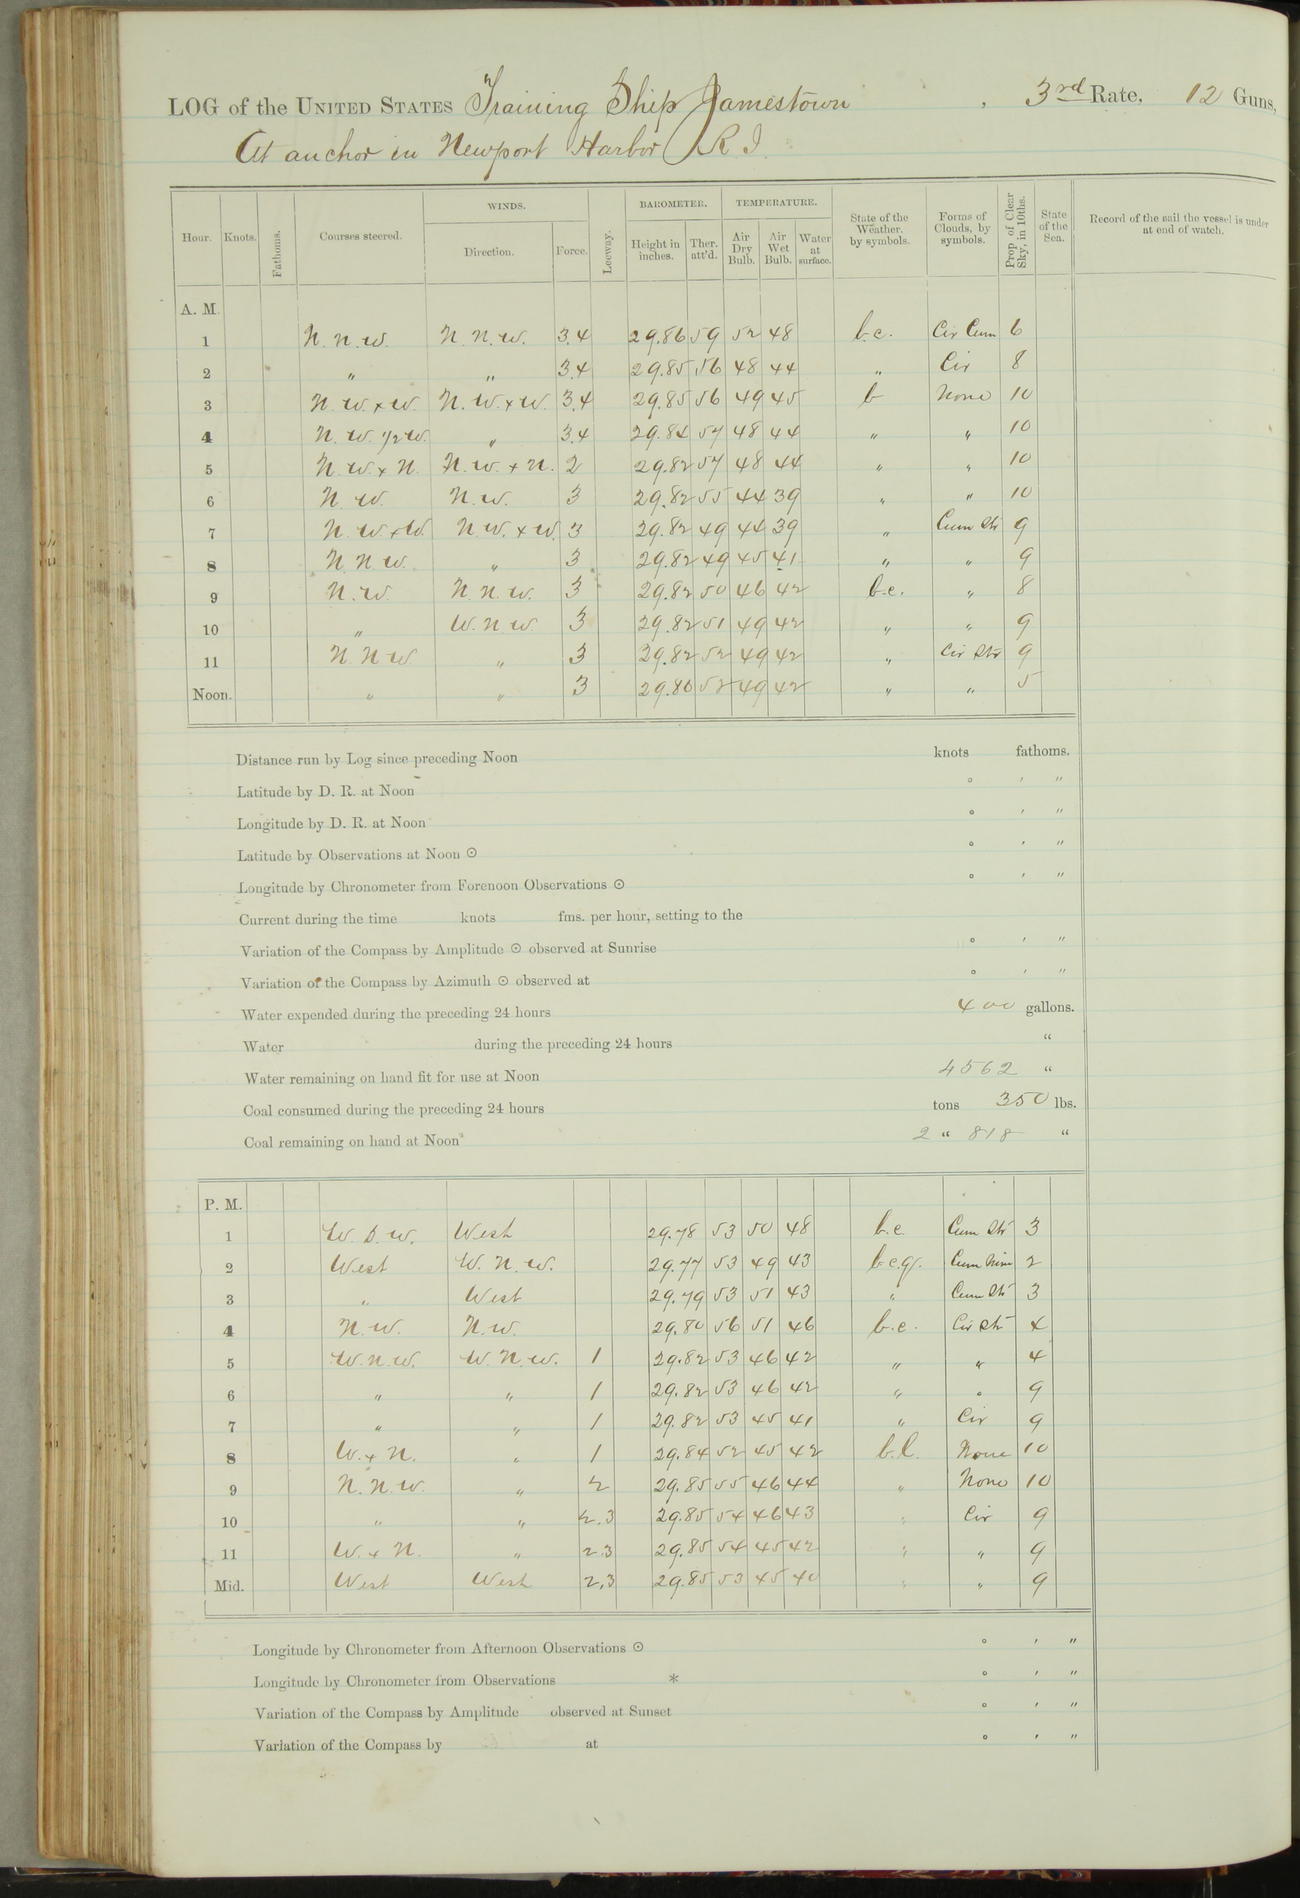 LOG of the UNITED STATES Training Ship Jamestown , 3rd Rate, 12 Guns,
At anchor in Newport Harbor R I
Hour. Knots. Fathoms. Courses steered. WINDS. Direction. Force. Leeway. BAROMETER. Height in inches. Ther. att'd. TEMPERATURE. Air Dry Bulb. Air Wet Bulb. Water at surface. State of the Weather. by symbols. Forms of Clouds, by symbols. Prop of Clear Sky, in 10ths. State of the Sea. Record of the sail the vessel is under at end of watch.
A. M.
1 N. N. W. N. N. W. 3.4 29.86 59 52 48 b.c. Cir Cum 6
2 " " 3.4 29.85 56 48 44 " Cir 8
3 N. W. x W. N. W. x W. 3.4 29.85 56 49 45 b None 10
4 N. W. 1/2 W. " 3.4 29.84 57 48 44 " " 10
5 N. W. x N. N. W. x N. 2 29.82 57 48 44 " " 10
6 N. W. N. W. 3 29.82 55 44 39 " " 10
7 N. W. x W. N. W. x W. 3 29.82 49 44 39 " Cum Str 9
8 N. N. W. " 3 29.82 49 45 41 " " 9
9 N. W. N. N. W. 3 29.82 50 46 42 b.c. " 8
10 " W. N. W. 3 29.82 51 49 42 " " 9
11 N. N. W " 3 29.82 52 49 42 " Cir Str 9
Noon. " " 3 29.80 52 49 42 " " 5
Distance run by Log since preceding Noon knots fathoms.
Latitude by D. R. at Noon ° ' "
Longitude by D. R. at Noon ° ' "
Latitude by Observations at Noon ☉ ° ' "
Longitude by Chronometer from Forenoon Observations ☉ ° ' "
Current during the time knots fms. per hour, setting to the
Variation of the Compass by Amplitude ☉ observed at Sunrise ° ' "
Variation of the Compass by Azimuth ☉ observed at ° ' "
Water expended during the preceding 24 hours 400 gallons.
Water during the preceding 24 hours "
Water remaining on hand fit for use at Noon 4562 "
Coal consumed during the preceding 24 hours tons 350 lbs.
Coal remaining on hand at Noon 2 " 818 "
P. M.
1 W. S. W. West 29.78 53 50 48 b.c. Cum Str 3
2 West W. N. W. 29.77 53 49 43 b.c.q. Cum Nim 2
3 " West 29.79 53 51 43 " Cum Str 3
4 N. W. N. W. 29.80 56 51 46 b.c. Cir Str 4
5 W. N. W. W. N. W. 1 29.82 53 46 42 " " 4
6 " " 1 29.82 53 46 42 " " 9
7 " " 1 29.82 53 45 41 " Cir 9
8 W. x N. " 1 29.84 52 45 42 b.c. None 10
9 N. N. W. " 2 29.85 55 46 44 " None 10
10 " " 2.3 29.85 54 46 43 " Cir 9
11 W. x N. " 2.3 29.85 54 45 42 " " 9
Mid. West West 2.3 29.85 53 45 40 " " 9
Longitude by Chronometer from Afternoon Observations ☉ ° ' "
Longitude by Chronometer from Observations * ° ' "
Variation of the Compass by Amplitude observed at Sunset ° ' "
Variation of the Compass by at ° ' "